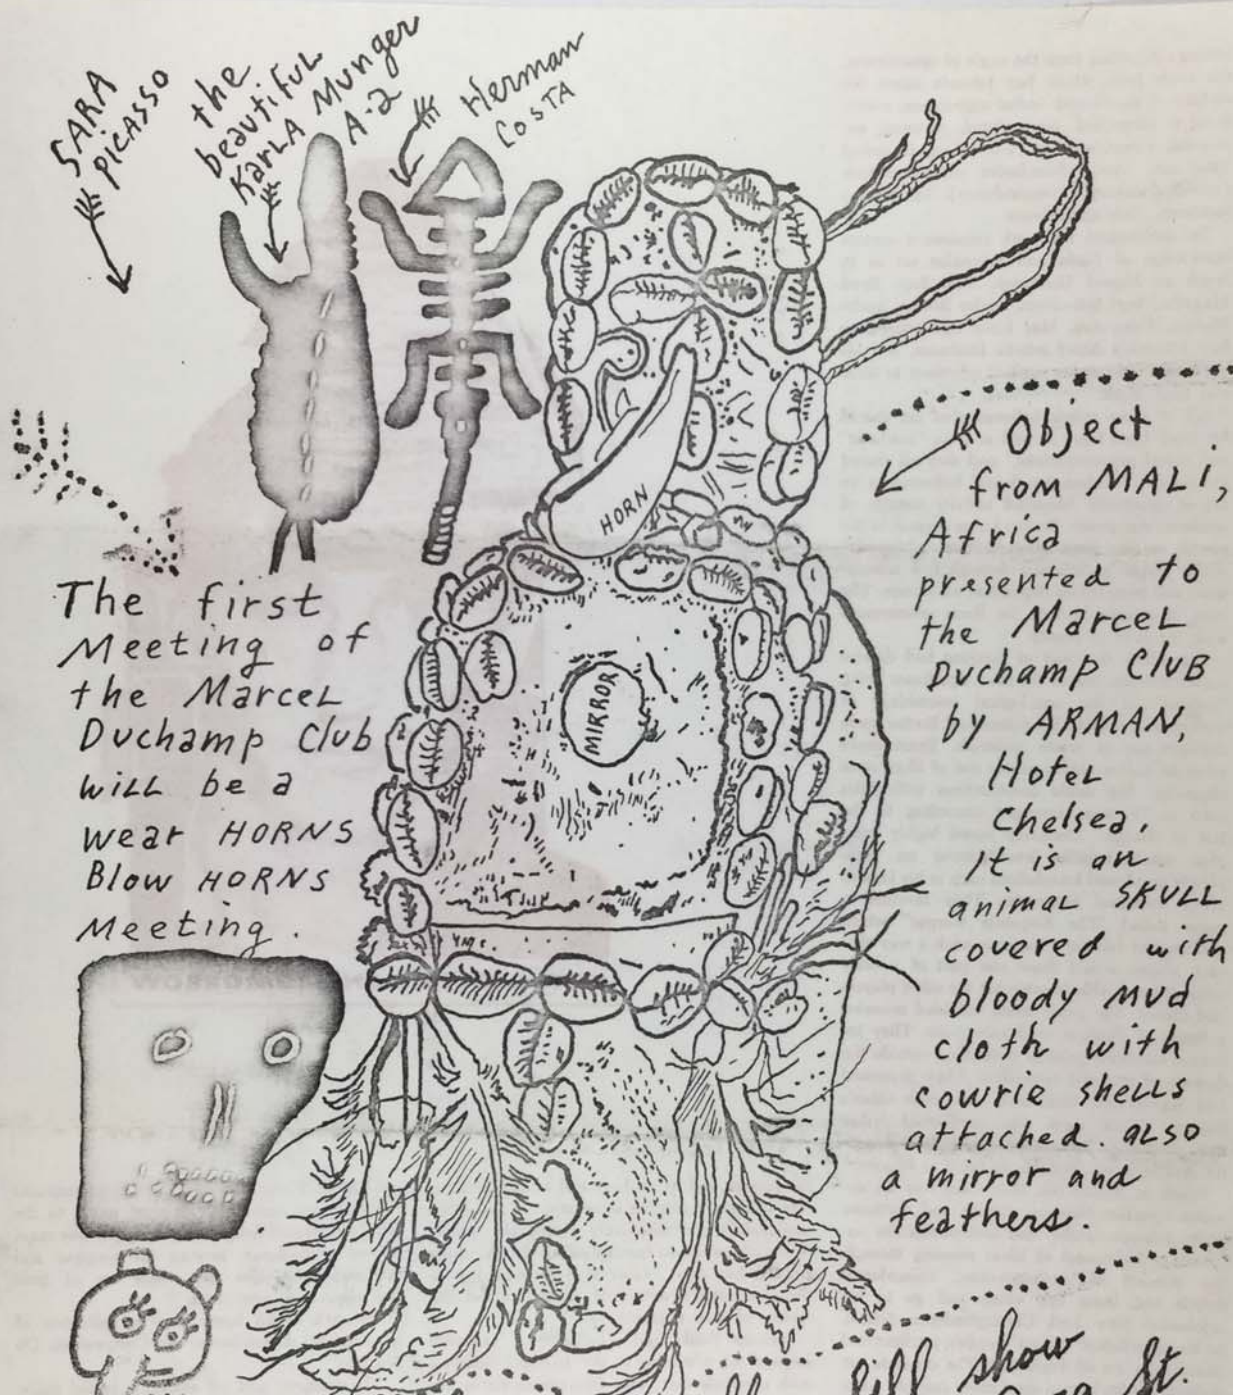 SARA
PICASSO
the
beautiful
KARLA MUNGER
A-2
Herman
COSTA
HORN
MIRROR
The first
Meeting of
the Marcel
Duchamp Club
will be a
wear HORNS
Blow HORNS
Meeting.
Object
from MALi,
Africa
presented to
the Marcel
Duchamp CluB
by ARMAN,
Hotel
Chelsea.
It is an
animal SKULL
covered with
bloody mud
cloth with
cowrie shells
attached. also
a mirror and
feathers.
show
St.